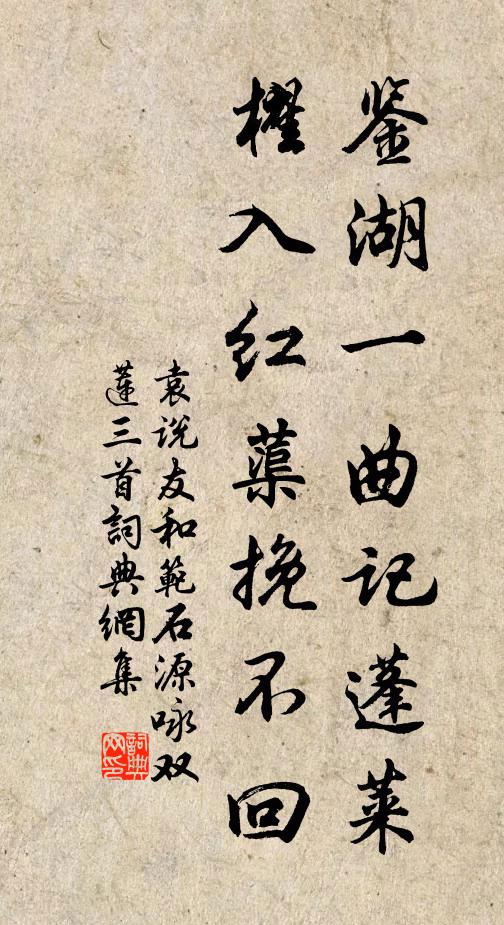 鉴湖一曲记蓬莱
櫂入红蕖挽不回
袁说友和範石源咏双
莲三首詞典網集
詞典
网印